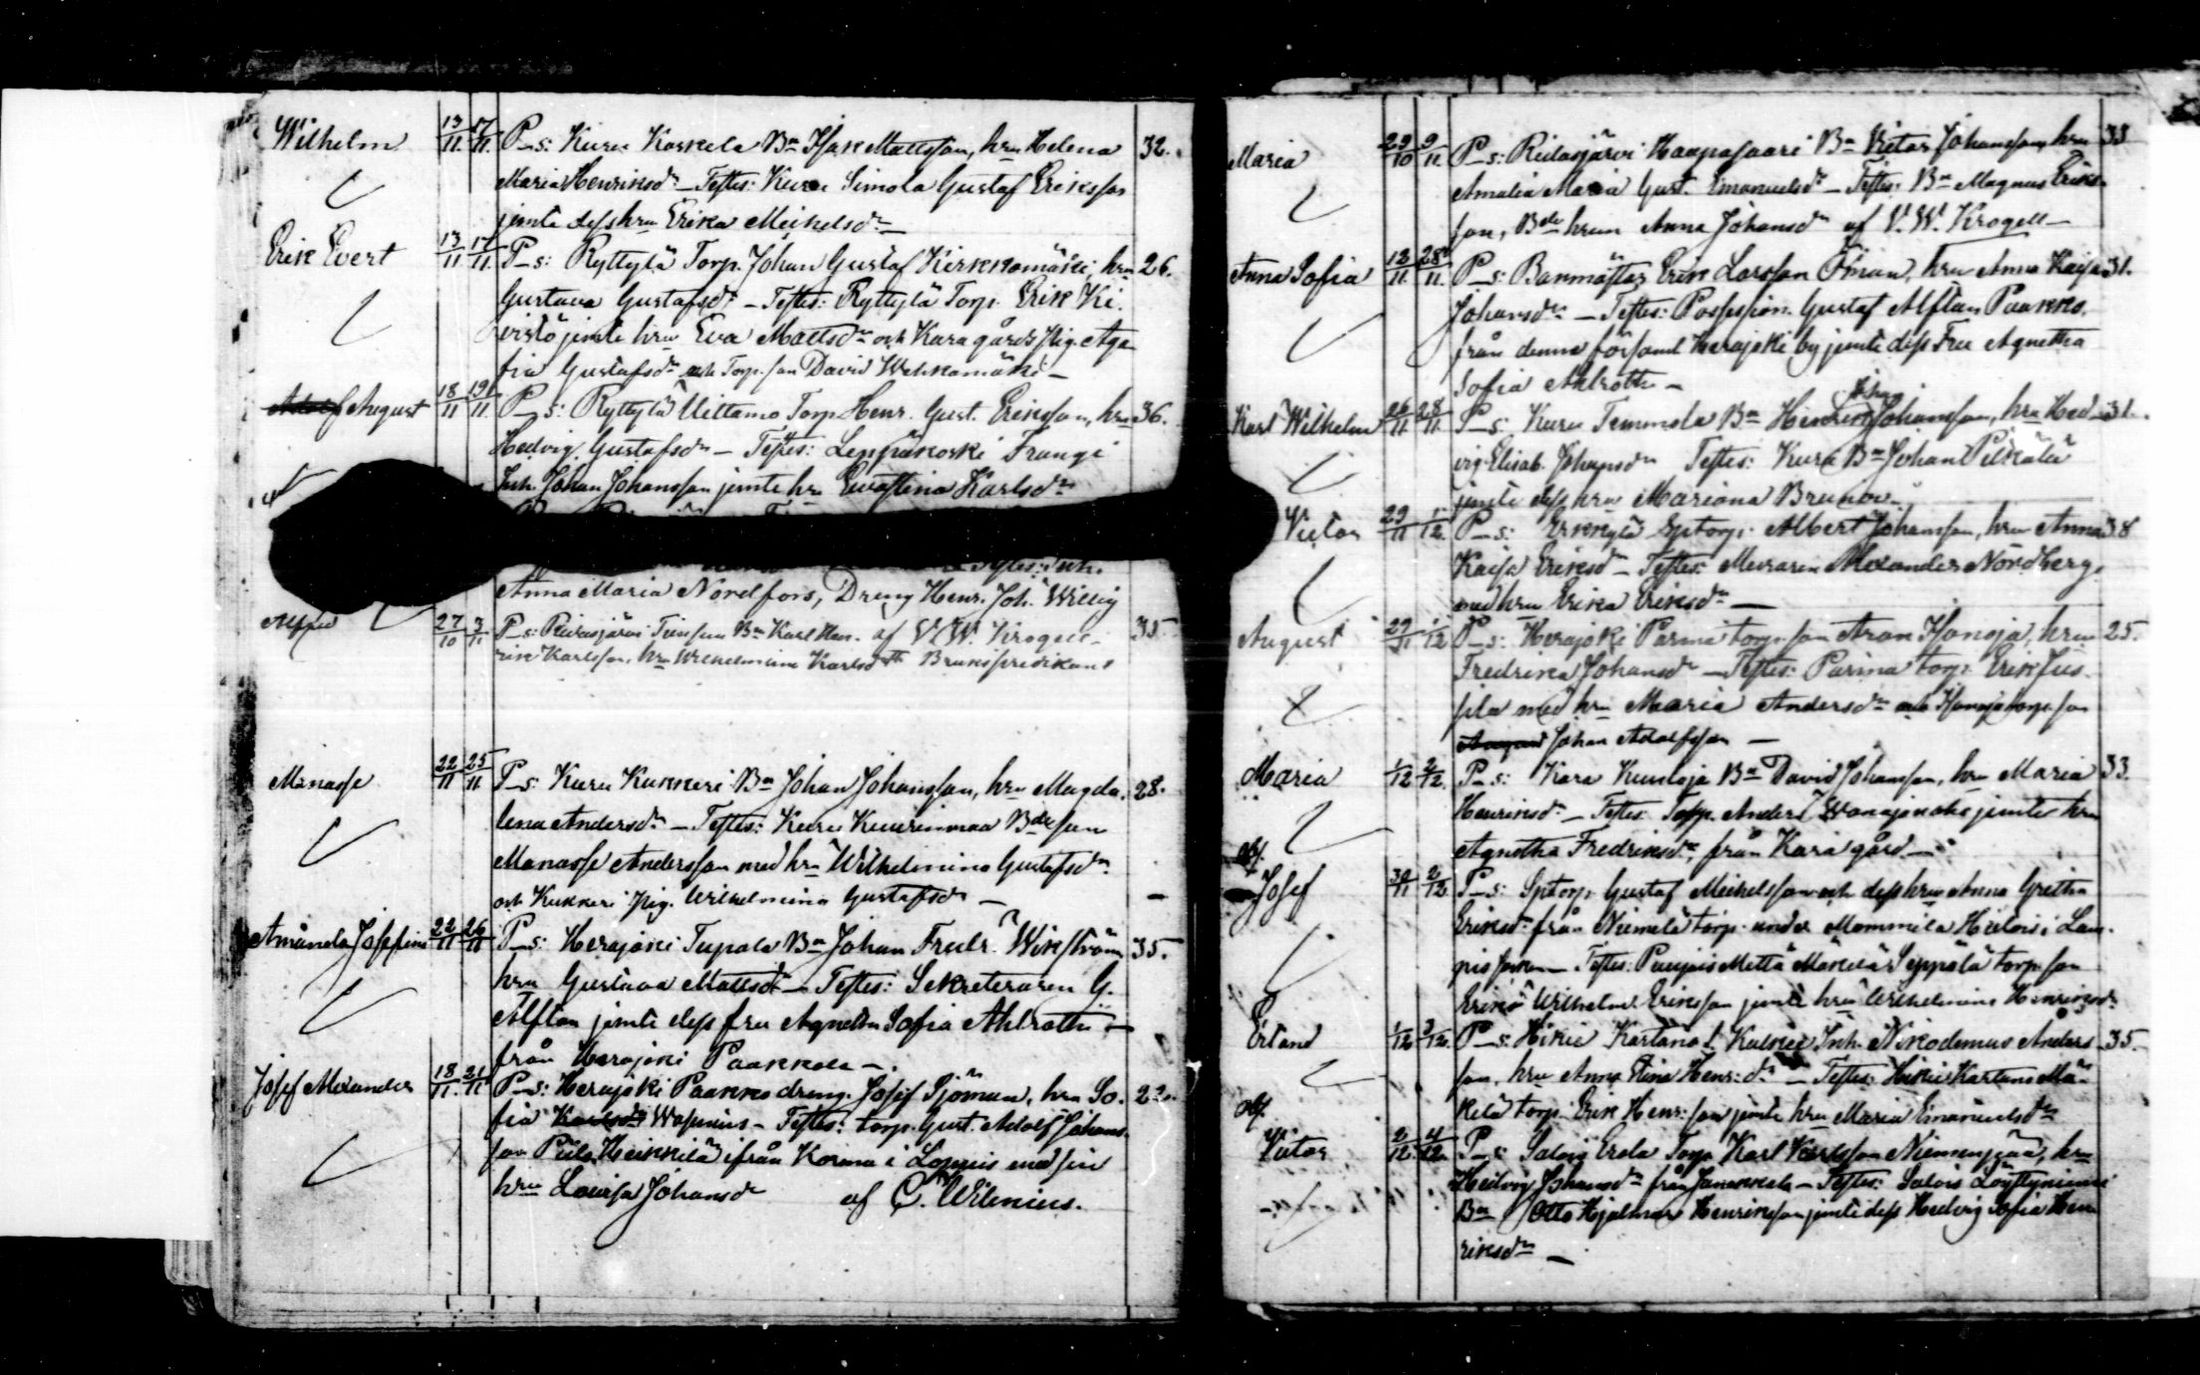 Wilhelm 13/11 17/11 P_s: Kuru Koskela Bn Isak Mattsson, hru Helena 32.
Maria Henriksdr – Testes: Kuru Simola Gustaf Eriksson
jemte dess hru Erika Mickelsdr –
Erik Evert 13/11 17/11 P_s: Ryttylä Torp. Johan Gustaf Kirkkomäki, hru 26.
Gustava Gustafsdr – Testes: Ryttylä Torp. Erik Ki-
vistö jemte hru Eva Mattsdr och Kara gårds pig. Aga-
tha Gustafsdr och Torp. son David Wehkamäki –
August 18/11 19/11 P_s: Ryttylä Uittamo Torp. Henr. Gust. Eriksson, hru 36.
Hedvig Gustafsdr – Testes: Leppäkoski
Inh. Johan Johansson jemte hru Evastina Karlsdr
Testes: Inh.
Anna Maria Nordfors, Dreng Henr. Joh. Willig
Alfred 27/10 3/11 P_s: Bn Karl Hen- af V. W. Krogell 35.
rik Karlsson, hru Wilhelmina Karlsdr Brukspredikant
Manasse 22/11 25/11 P_s: Kuru Kukkeri Bn Johan Johansson, hru Magda- 28.
lena Andersdr – Testes: Kuru Kuurinmaa Bdeson
Manasse Andersson med hru Wilhelmina Gustafsdr
och Kukkeri pig. Wilhelmina Gustafsdr –
Amanda Josefina 22/11 26/11 P_s: Herajoki Tupala Bn Johan Fredr. Wikström 35.
hru Gustava Mattsdr – Testes: Sekreteraren G.
Alftan jemte dess fru Agnetha Sofia Ahlroth –
från Herajoki Paakkola –.
Josef Alexander 18/11 21/11 P_s: Herajoki Paakko dreng. Josef Sjöman, hru So- 22.
fia Karlsdr Wasenius – Testes: torp. Gust. Adolf Johans-
son Heikkilä ifrån Kormu i Loppis med sin
hru Lovisa Johansdr af C. Wilenius.
Maria 29/10 9/11 P_s: Riilasjärvi Haapasaari Bn Viktor Johansson, hru 33
Amalia Maria Gust. Emanuelsdr – Testes: Bn Magnus Eriks-
son, Bde hrun Anna Johansdr af V. W. Krogell –
Anna Sofia 12/11 28/11 P_s: Banmästar Erik Larsson Öman, hru Anna Kaisa 31.
Johansdr – Testes: Possession. Gustaf Alftan Paakko.
från denna församl Herajoki by jemte dess Fru Agnetha
Sofia Ahlroth –
Karl Wilhelm 26/11 28/11 P_s: Kuru Temmola Bn Henrik Johan Johansson, hru Hed- 31.
vig Elisab. Johansdr Testes: Kuru Bn Johan Pilkälä
jemte dess hru Mariana Brunow –
Victor 29/11 1/12 P_s: Erkkylä Sptorp. Albert Johansson, hru Anna 38
Kaisa Eriksdr – Testes: Muraren Alexander Nordberg
med hru Erika Eriksdr –
August 29/11 1/12 P_s: Herajoki Parma torp. son Aron Isonoja, hru 25.
Fredrika Johansdr – Testes: Parma torp. Erik Jus-
sila med hru Maria Andersdr och Isonoja torp. son
August Johan Adolfsson –
Maria 1/12 2/12 P_s: Kara Kuuloja Bn David Johansson, hru Maria 33.
Henriksdr – Testes: Torp. Anders Wanajanoks jemte hru
Agnetha Fredriksdr, från Kara gård –
Josef 30/11 2/12 P_s: Sptorp. Gustaf Mickelsson och dess hru Anna Gretha
Eriksdr från Niemelä torp. under Mommila Hietois i Lam-
pis socken – Testes: Puujois Mettä Mäkelä Seppälä torp. son
Erik Wilhelm Eriksson jemte hru Wilhelmina Henriksdr
Erland 1/12 3/12 P_s: Hikiä Kartano Inh. Nikodemus Anders- 35.
son, hru Anna Stina Henr.dr – Testes: Hikiä Kartano Mä-
kelä torp. Erik Henr. son jemte hru Maria Emanuelsdr
Victor 2/12 4/12 P_s: Salois Erola Torp. Karl Karlsson Niemenpää, hru
Hedvig Johansdr från Janakkala – Testes: Salois Löyttyniemi
Bn Otto Hjalmar Henriksson jemte dess Hedvig Sofia Hen-
riksdr –